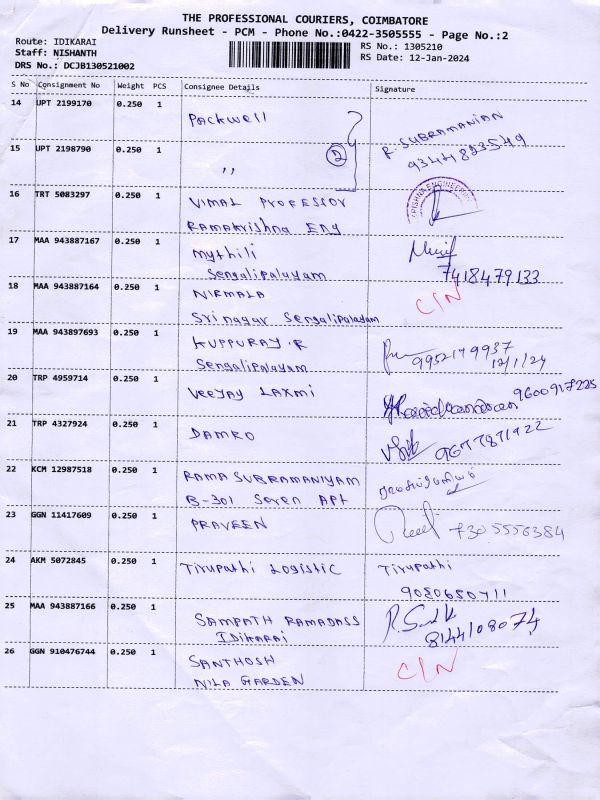 THE PROFESSIONAL COURIERS, COIMBATORE
Delivery Runsheet - PCM - Phone No.:0422-3505555 - Page No.:2
Route: IDIKARAI
Staff: NISHANTH
DRS No.: DCJB130521002
RS No.: 1305210
RS Date: 12-Jan-2024
S No Consignment No Weight PCS Consignee Details Signature
14 UPT 2199170 0.250 1 Packwell
R. SUBRAMANIAN
15 UPT 2198790 0.250 1 ,, 2
9344823549
16 TRT 5083297 0.250 1 VIMAL PROFESSOR
Ramakrishna Eng
17 MAA 943887167 0.250 1 Mythili
Sengalipalayam 7418479133
18 MAA 943887164 0.250 1 NIRMALA C/N
Sri nagar Sengalipalayam
19 MAA 943897693 0.250 1 KUPPURAY.R
Sengalipalayam 9952179937
12/1/24
20 TRP 4959714 0.250 1 VEEJAY LAXMI 9600917225
21 TRP 4327924 0.250 1 DAMRO 9677871922
22 KCM 12987518 0.250 1 RAMA SUBRAMANIYAM
B-301 Seven Apt
23 GGN 11417609 0.250 1 PRAVEEN
7305556384
24 AKM 5072845 0.250 1 Tirupathi Logistic Tirupathi
9080650711
25 MAA 943887166 0.250 1 SAMPATH RAMADASS
IDikarai 8144108074
26 GGN 910476744 0.250 1 SANTHOSH C/N
NILA GARDEN